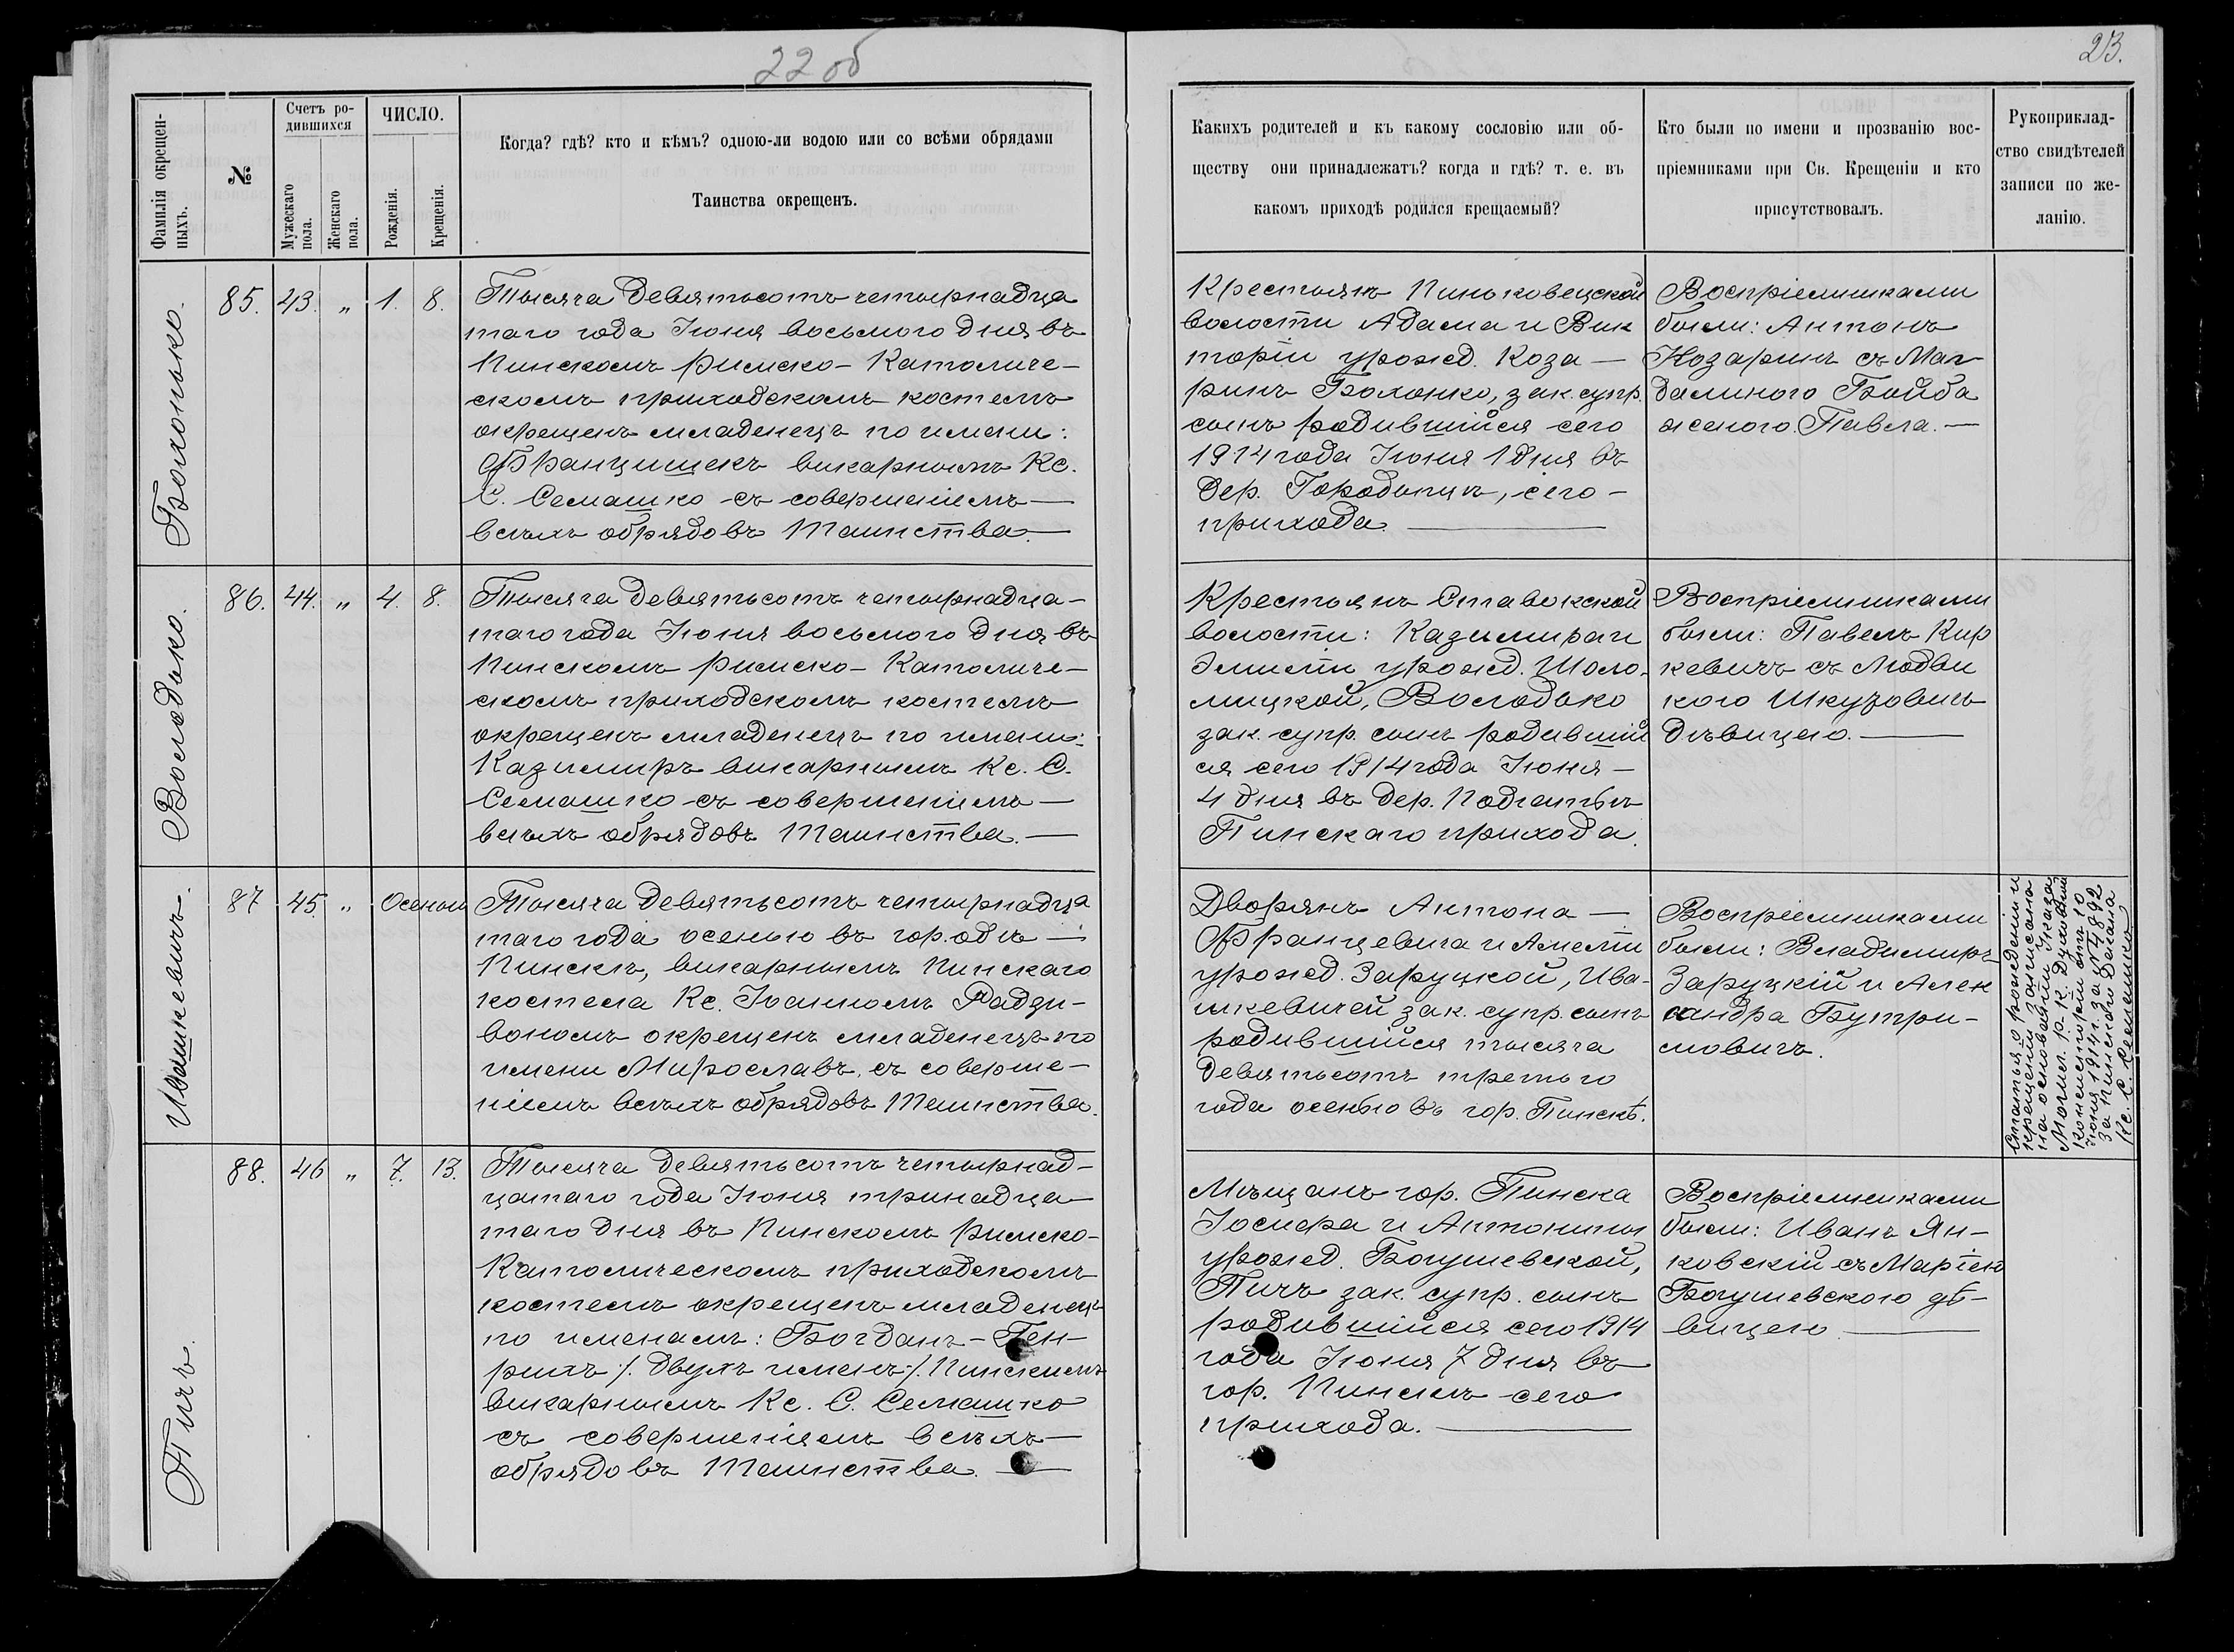 22 об
23.
Фамилія окрещен-
ныхъ.
№
Счетъ ро-
дившихся
Мужескаго
пола.
Женскаго
пола.
ЧИСЛО.
Рожденія.
Крещенія.
Когда? гдѣ? кто и кѣмъ? одною-ли водою или со всѣми обрядами
Таинства окрещенъ.
Какихъ родителей и къ какому сословію или об-
ществу они принадлежатъ? когда и гдѣ? т. е. въ
какомъ приходѣ родился крещаемый?
Кто были по имени и прозванію вос-
пріемниками при Св. Крещеніи и кто
присутствовалъ.
Рукоприклад-
ство свидѣтелей
записи по же-
ланію.
Болонько.
85. 43. „ 1. 8.
Тысяча девятьсотъ четырнадца
таго года Іюня восьмого дня въ
Пинскомъ римско-Католиче-
скомъ приходскомъ костелѣ
окрещенъ младенецъ по имени:
Францишекъ викарнымъ Кс.
С. Семашко съ совершеніемъ —
всѣхъ обрядовъ Таинства. —
Крестьянъ Пиньковецской
волости Адама и Вик
торіи урожд. Коза —
ринъ Болонко, зак. супр.
сынъ родившійся сего
1914 года Іюня 1 дня въ
дер. Городыщѣ, сего —
прихода. —
Воспріемниками
были: Антонъ
Козаринъ съ Маг-
далиною Бойба
женою Павла. —
Володько.
86. 44. „ 4. 8.
Тысяча девятьсотъ четырнадца-
таго года Іюня восьмого дня въ
Пинскомъ римско-Католиче-
скомъ приходскомъ костелѣ
окрещенъ младенецъ по имени:
Казимиръ викарнымъ Кс. С.
Семашко съ совершеніемъ —
всѣхъ обрядовъ Таинства. —
Крестьянъ Ставокской
волости: Казимира и
Эмиліи урожд. Шоло-
мицкой, Володько
зак. супр. сынъ родившій
ся сего 1914 года Іюня —
4 дня въ дер.
Пинскаго прихода.
Воспріемниками
были: Павелъ Кир
кевичъ съ Людви
кою Шкузовичъ
дѣвицею. —
Ивашкевичъ.
87 45. „ Осенью
Тысяча девятьсотъ четырнадца
таго года осенью въ городѣ —
Пинскѣ, викарнымъ Пинскаго
костела Кс. Іоанномъ Радзи-
вономъ окрещенъ младенецъ по
имени Мирославъ, съ соверше-
ніемъ всѣхъ обрядовъ Таинства.
Дворянъ Антона —
Францевича и Амеліи
урожд. Заруцкой, Ива-
шкевичей зак. супр. сынъ
родившійся тысяча
девятьсотъ третьго
года осенью въ гор. Пинскѣ.
Воспріемниками
были: Владимиръ
Заруцкій и Алек
сандра Бутри-
мовичъ.
Статья о рожденіи и
крещеніи записана
на основаніи Указа
Могил. Р. К. Духовной
Консисторіи отъ 10
Іюня 1914 г. за № 4892
За Пинскаго Декана
Кс. С. Семашко
Пичъ.
88. 46 „ 7. 13.
Тысяча девятьсотъ четырнад-
цатаго года Іюня тринадца
таго дня въ Пинскомъ римско-
Католическомъ приходскомъ
костелѣ окрещенъ младенецъ
по именамъ: Богданъ-Ген-
рихъ /. двухъ именъ ./ Пинскимъ
викарнымъ Кс. С. Семашко
съ совершеніемъ всѣхъ —
обрядовъ Таинства. —
Мѣщанъ гор. Пинска
Іосифа и Антонины
урожд. Богушевской,
Пичъ зак. супр. сынъ
родившійся сего 1914
года Іюня 7 дня въ
гор. Пинскѣ сего
прихода. —
Воспріемниками
были: Иванъ Ян-
ковскій съ Маріею
Богушевскою дѣ-
вицею. —